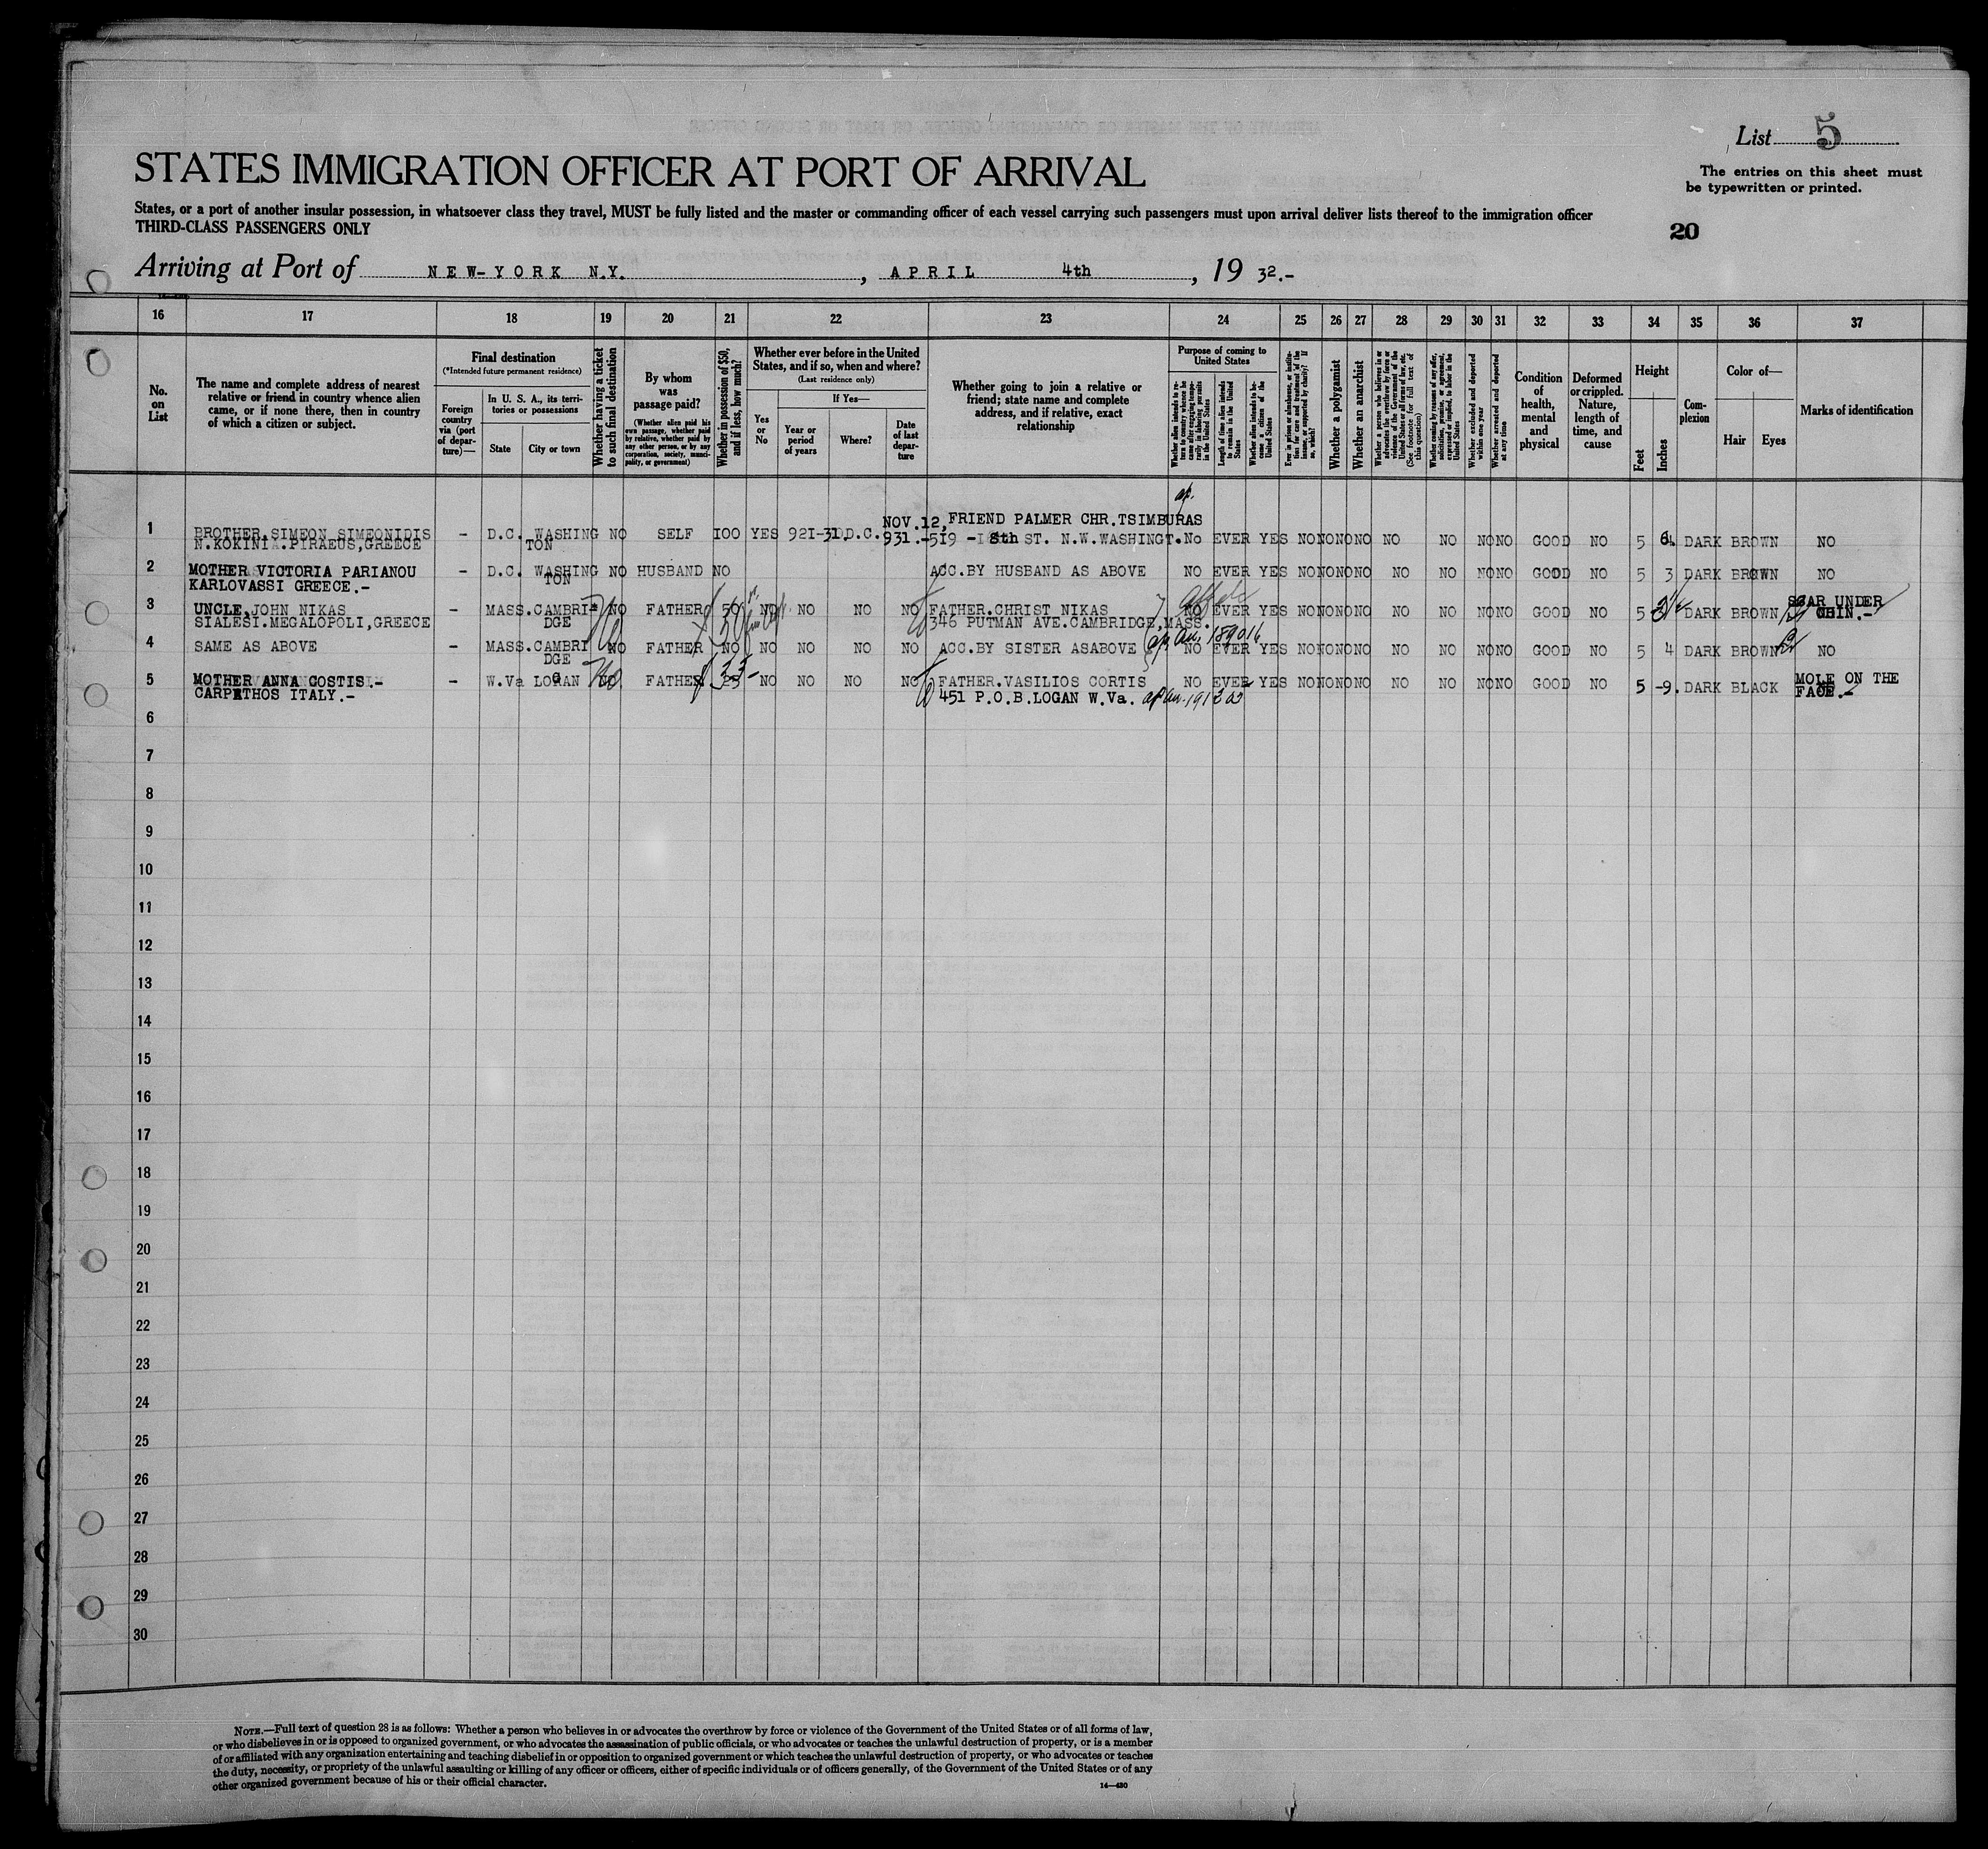 List 5
STATES IMMIGRATION OFFICER AT PORT OF ARRIVAL
The entries on this sheet must
be typewritten or printed.
States, or a port of another insular possession, in whatsoever class they travel, MUST be fully listed and the master or commanding officer of each vessel carrying such passengers must upon arrival deliver lists thereof to the immigration officer
THIRD-CLASS PASSENGERS ONLY
20
Arriving at Port of NEW-YORK N.Y. , APRIL 4th , 19 32.-
16 17 18 19 20 21 22 23 24 25 26 27 28 29 30 31 32 33 34 35 36 37
No. on List
The name and complete address of nearest relative or friend in country whence alien came, or if none there, then in country of which a citizen or subject.
Final destination
(*Intended future permanent residence)
Foreign country via (port of departure)—
In U. S. A., its territories or possessions
State
City or town
Whether having a ticket to such final destination
By whom was passage paid?
(Whether alien paid his own passage, whether paid by relative, whether paid by any other person, or by any corporation, society, municipality, or government)
Whether in possession of $50, and if less, how much?
Whether ever before in the United States, and if so, when and where?
(Last residence only)
Yes or No
If Yes—
Year or period of years
Where?
Date of last departure
Whether going to join a relative or friend; state name and complete address, and if relative, exact relationship
Purpose of coming to United States
Whether alien intends to return to country whence he came after engaging temporarily in laboring pursuits in the United States
Length of time alien intends to remain in the United States
Whether alien intends to become a citizen of the United States
Ever in prison or almshouse, or institution for care and treatment of the insane, or supported by charity? If so, which?
Whether a polygamist
Whether an anarchist
Whether a person who believes in or advocates the overthrow by force or violence of the Government of the United States or all forms of law, etc. (See footnote for full text of this question)
Whether coming by reasons of any offer, solicitation, promise, or agreement, expressed or implied, to labor in the United States
Whether excluded and deported within one year
Whether arrested and deported at any time
Condition of health, mental and physical
Deformed or crippled. Nature, length of time, and cause
Height
Feet
Inches
Complexion
Color of—
Hair
Eyes
Marks of identification
1 BROTHER SIMEON SIMEONIDIS - D.C. WASHING NO SELF 100 YES 921-31 D.C. NOV.12, FRIEND PALMER CHR.TSIMBURAS
N.KOKINIA.PIRAEUS,GREECE TON 931.- 519 - 8th ST. N.W.WASHINGT. No EVER YES NO NO NO NO NO NO NO NO GOOD NO 5 DARK BROWN NO
2 MOTHER VICTORIA PARIANOU - D.C. WASHING NO HUSBAND NO ACC.BY HUSBAND AS ABOVE NO EVER YES NO NO NO NO NO NO NO NO GOOD NO 5 3 DARK BROWN NO
KARLOVASSI GREECE.- TON
3 UNCLE,JOHN NIKAS - MASS.CAMBRI- NO FATHER 50 NO NO NO NO FATHER.CHRIST NIKAS NO EVER YES NO NO NO NO NO NO NO NO GOOD NO 5 DARK BROWN SCAR UNDER
SIALESI.MEGALOPOLI,GREECE DGE 346 PUTMAN AVE.CAMBRIDGE,MASS. CHIN.-
4 SAME AS ABOVE - MASS.CAMBRI NO FATHER NO NO NO NO NO ACC.BY SISTER ASABOVE NO EVER YES NO NO NO NO NO NO NO NO GOOD NO 5 4 DARK BROWN NO
DGE
5 MOTHER ANNA COSTIS.- - W.Va LOGAN NO FATHER 25 NO NO NO NO FATHER.VASILIOS CORTIS NO EVER YES NO NO NO NO NO NO NO NO GOOD NO 5 -9. DARK BLACK MOLE ON THE
CARPATHOS ITALY.- 451 P.O.B.LOGAN W.Va. FACE.-
6
7
8
9
10
11
12
13
14
15
16
17
18
19
20
21
22
23
24
25
26
27
28
29
30
NOTE.—Full text of question 28 is as follows: Whether a person who believes in or advocates the overthrow by force or violence of the Government of the United States or of all forms of law,
or who disbelieves in or is opposed to organized government, or who advocates the assassination of public officials, or who advocates or teaches the unlawful destruction of property, or is a member
of or affiliated with any organization entertaining and teaching disbelief in or opposition to organized government or which teaches the unlawful destruction of property, or who advocates or teaches
the duty, necessity, or propriety of the unlawful assaulting or killing of any officer or officers, either of specific individuals or of officers generally, of the Government of the United States or of any
other organized government because of his or their official character.
14—430